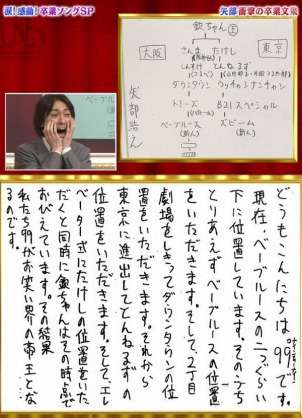 涙!感動!卒業ソングSP
矢部 衝撃の卒業文集
欽ちゃん
大阪
東京
さんま たけし
しんすけ とんねるず
ダウンタウン ウッチャンナンチャン
トミーズ B21スペシャル
ベーブルース ズビーム
(新人) (新人)
矢部浩之
ベーブル
どうもこんにちは99です。
現在、ベーブルースの二つぐらい
下に位置しています。そのうち
とりあえずベーブルースの位置
をいただきます。そして2丁目
劇場をしきってダウンタウンの位
置をいただきます。それから
東京に進出してとんねるずの
位置をいただきます。そして、エレ
ベーター式にたけしの位置をいた
だくと同時に欽ちゃんはその時点で
おびえています。その結果
私たち99がお笑い界の帝王とな
るのです。